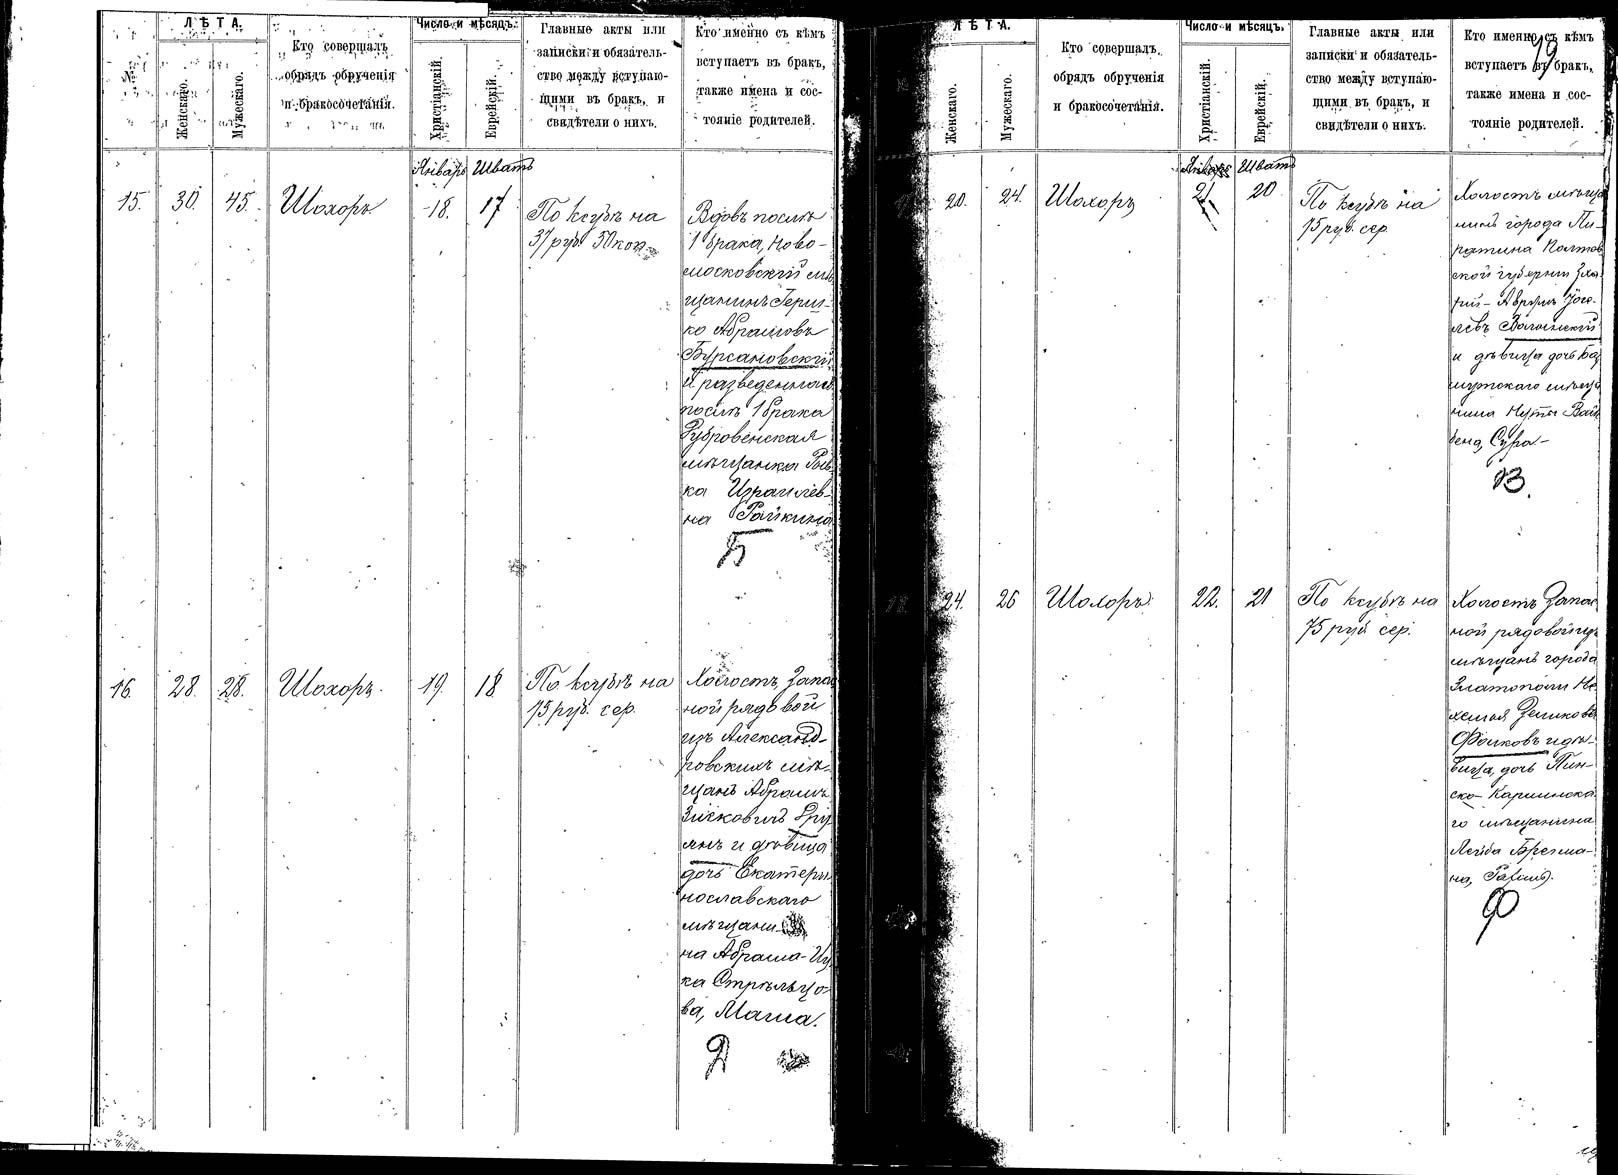 ЛѢТА.
Женскаго.
Мужескаго.
Кто совершалъ
обрядъ обрученія
и бракосочетанія.
Число и мѣсяцъ.
Христіанскій.
Еврейскій.
Главные акты или
записки и обязатель-
ство между вступаю-
щими въ бракъ, и
свидѣтели о нихъ.
Кто именно съ кѣмъ
вступаетъ въ бракъ,
также имена и сос-
тояніе родителей.
Январь Шватъ
15. 30. 45. Шохоръ. 18. 17
По ксубѣ на
37 руб. 50 коп.
Вдовъ послѣ
1 брака, Ново-
московскій мѣ
щанинъ Герш-
ко Абрамовъ
Бурсановскій
и разведенная
послѣ 1 брака
Дубровенская
мѣщанка Рыв
ка Израилев-
на Райкина
Б
16. 28. 28. Шохоръ. 19. 18
По ксубѣ на
75 руб. сер.
Холостъ, запас
ной рядовой
изъ Александ-
ровскихъ мѣ-
щанъ Абрамъ
Зисковичъ
и дѣвица
дочь Екатери
нославскаго
мѣщани-
на Абрама-Иц
ка Стрѣльцо-
ва, Маша.
Д
19
ЛѢТА.
Женскаго.
Мужескаго.
Кто совершалъ
обрядъ обрученія
и бракосочетанія.
Число и мѣсяцъ.
Христіанскій.
Еврейскій.
Главные акты или
записки и обязатель-
ство между вступаю-
щими въ бракъ, и
свидѣтели о нихъ.
Кто именно съ кѣмъ
вступаетъ въ бракъ,
также имена и сос-
тояніе родителей.
Январь Шватъ
20. 24. Шохоръ 21 20
По ксубѣ на
75 руб. сер.
Холостъ мѣща
нинъ города Пи-
рятина Полтав
ской губерніи Зха
рій-Аврумъ Іосе-
левъ Волынскій
и дѣвица дочь Ба
мутскаго мѣща
нина Нуты Вай
бена, Сура-
В.
18. 24. 26 Шохоръ. 22. 21
По ксубѣ на
75 руб сер.
Холостъ Запас
ной рядовой изъ
мѣщанъ города
Златополи Не
хемья Зеликовъ
Фолковъ и дѣ-
вица, дочь Пин-
ско-Карлинска
го мѣщанина
Лейба Брегма-
на, Рахиль.
Ф